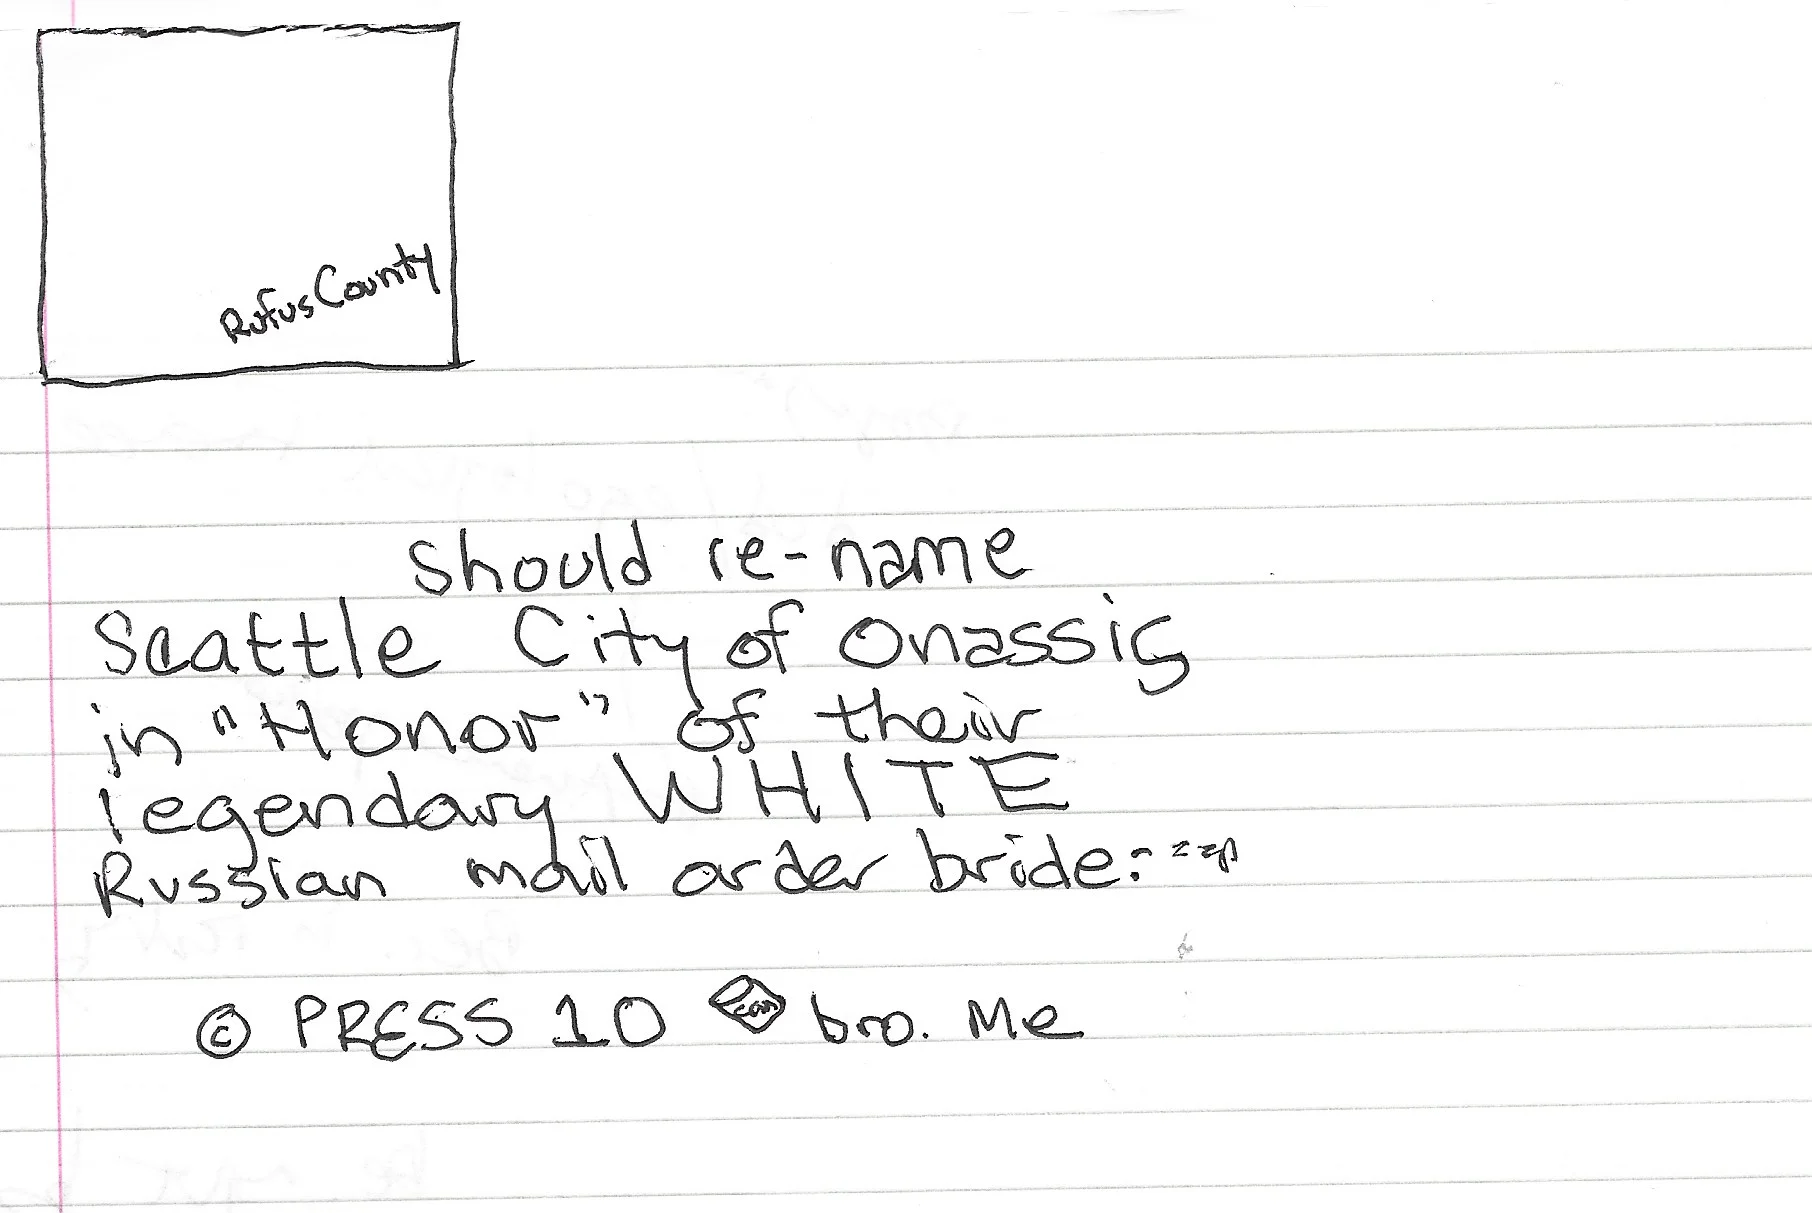 Rufus County
should re-name
Seattle City of Onassis
in "Honor" of their
legendary WHITE
Russian mail order bride:
© PRESS 10 bro. Me